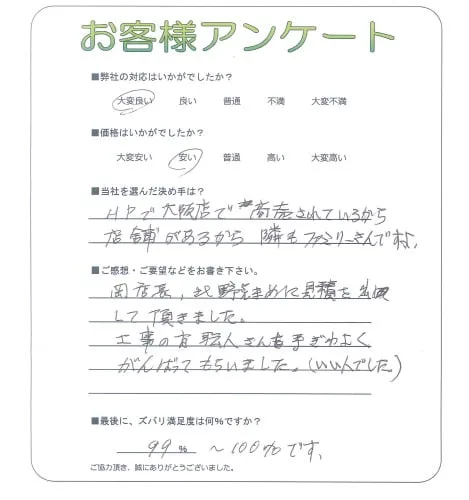 お客様アンケート
■弊社の対応はいかがでしたか？
大変良い 良い 普通 不満 大変不満
■価格はいかがでしたか？
大変安い 安い 普通 高い 大変高い
■当社を選んだ決め手は？
HPで大阪店で 商売されているから
店舗があるから 隣もファミリーさんですよ、
■ご感想・ご要望などをお書き下さい。
岡店長、北野さん 見積を
して頂きました。
工事の方 職人さんも手ぎわよく
がんばってもらいました。(いい人でした)
■最後に、ズバリ満足度は何％ですか？
99％ ～100％です、
ご協力頂き、誠にありがとうございました。